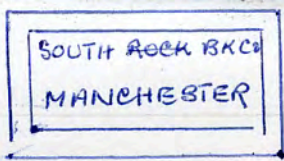 SOUTH ROCK BKCo
MANCHESTER